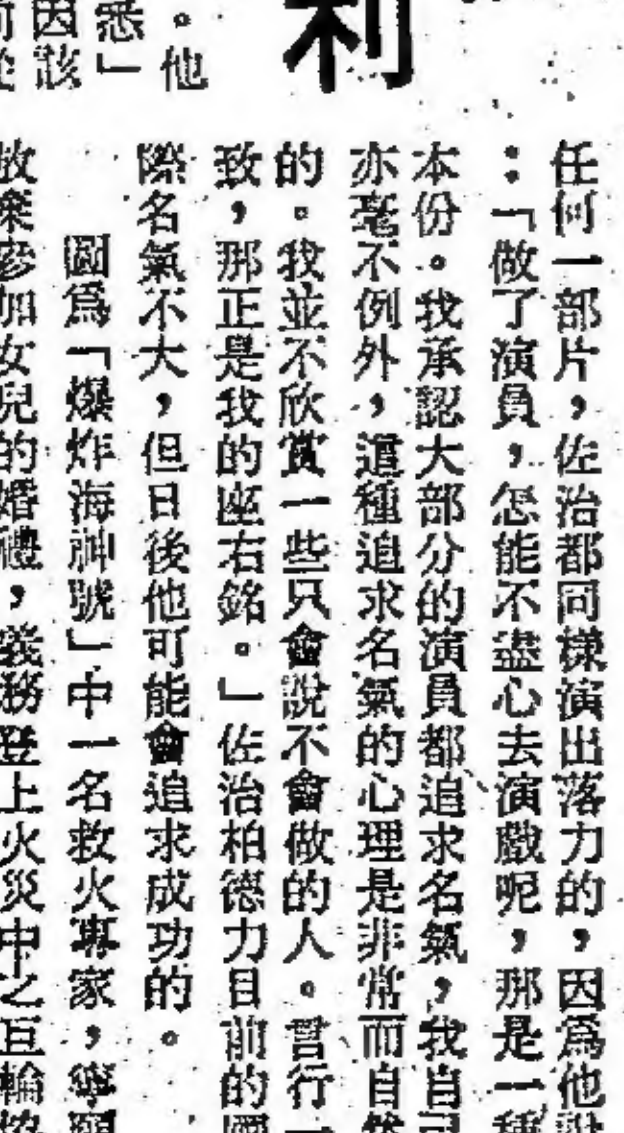 利
悉。
因
」他
該
任何一部片,佐治都同樣演出落力的,因爲他說
:「做了演員,怎能不盡心去演戲呢,那是一種
本份。我承認大部分的演員都追求名氣,我自己
亦毫不例外,這種追求名氣的心理是非常而自然
的。我並不欣賞一些只會說不會做的人。言行一
致,那正是我的座右銘。」佐治柏德力目前的國
際名氣不大,但日後他可能會追求成功的。
圖爲「爆炸海神號」中一名救火專家,寧願
放棄參加女兒的婚禮,義務登上火災中之巨輪